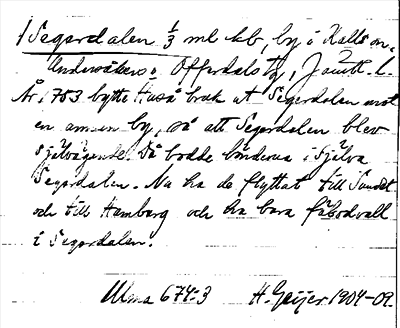 Segerdalen 1/3 ml kb, by i Kalls sn.
Undersåkers o. Offerdals tg, Jämtl. l.
År 1753 bytte Huså bruk ut Segerdalen mot
en annan by, så att Segerdalen blev
självägande. Då bodde bönderna i själva
Segerdalen. Nu ha de flyttat till Sundet
och till Hamborg och ha bara fäbodvall
i Segerdalen.
Ulma 674:3 H. Geijer 1904-09.